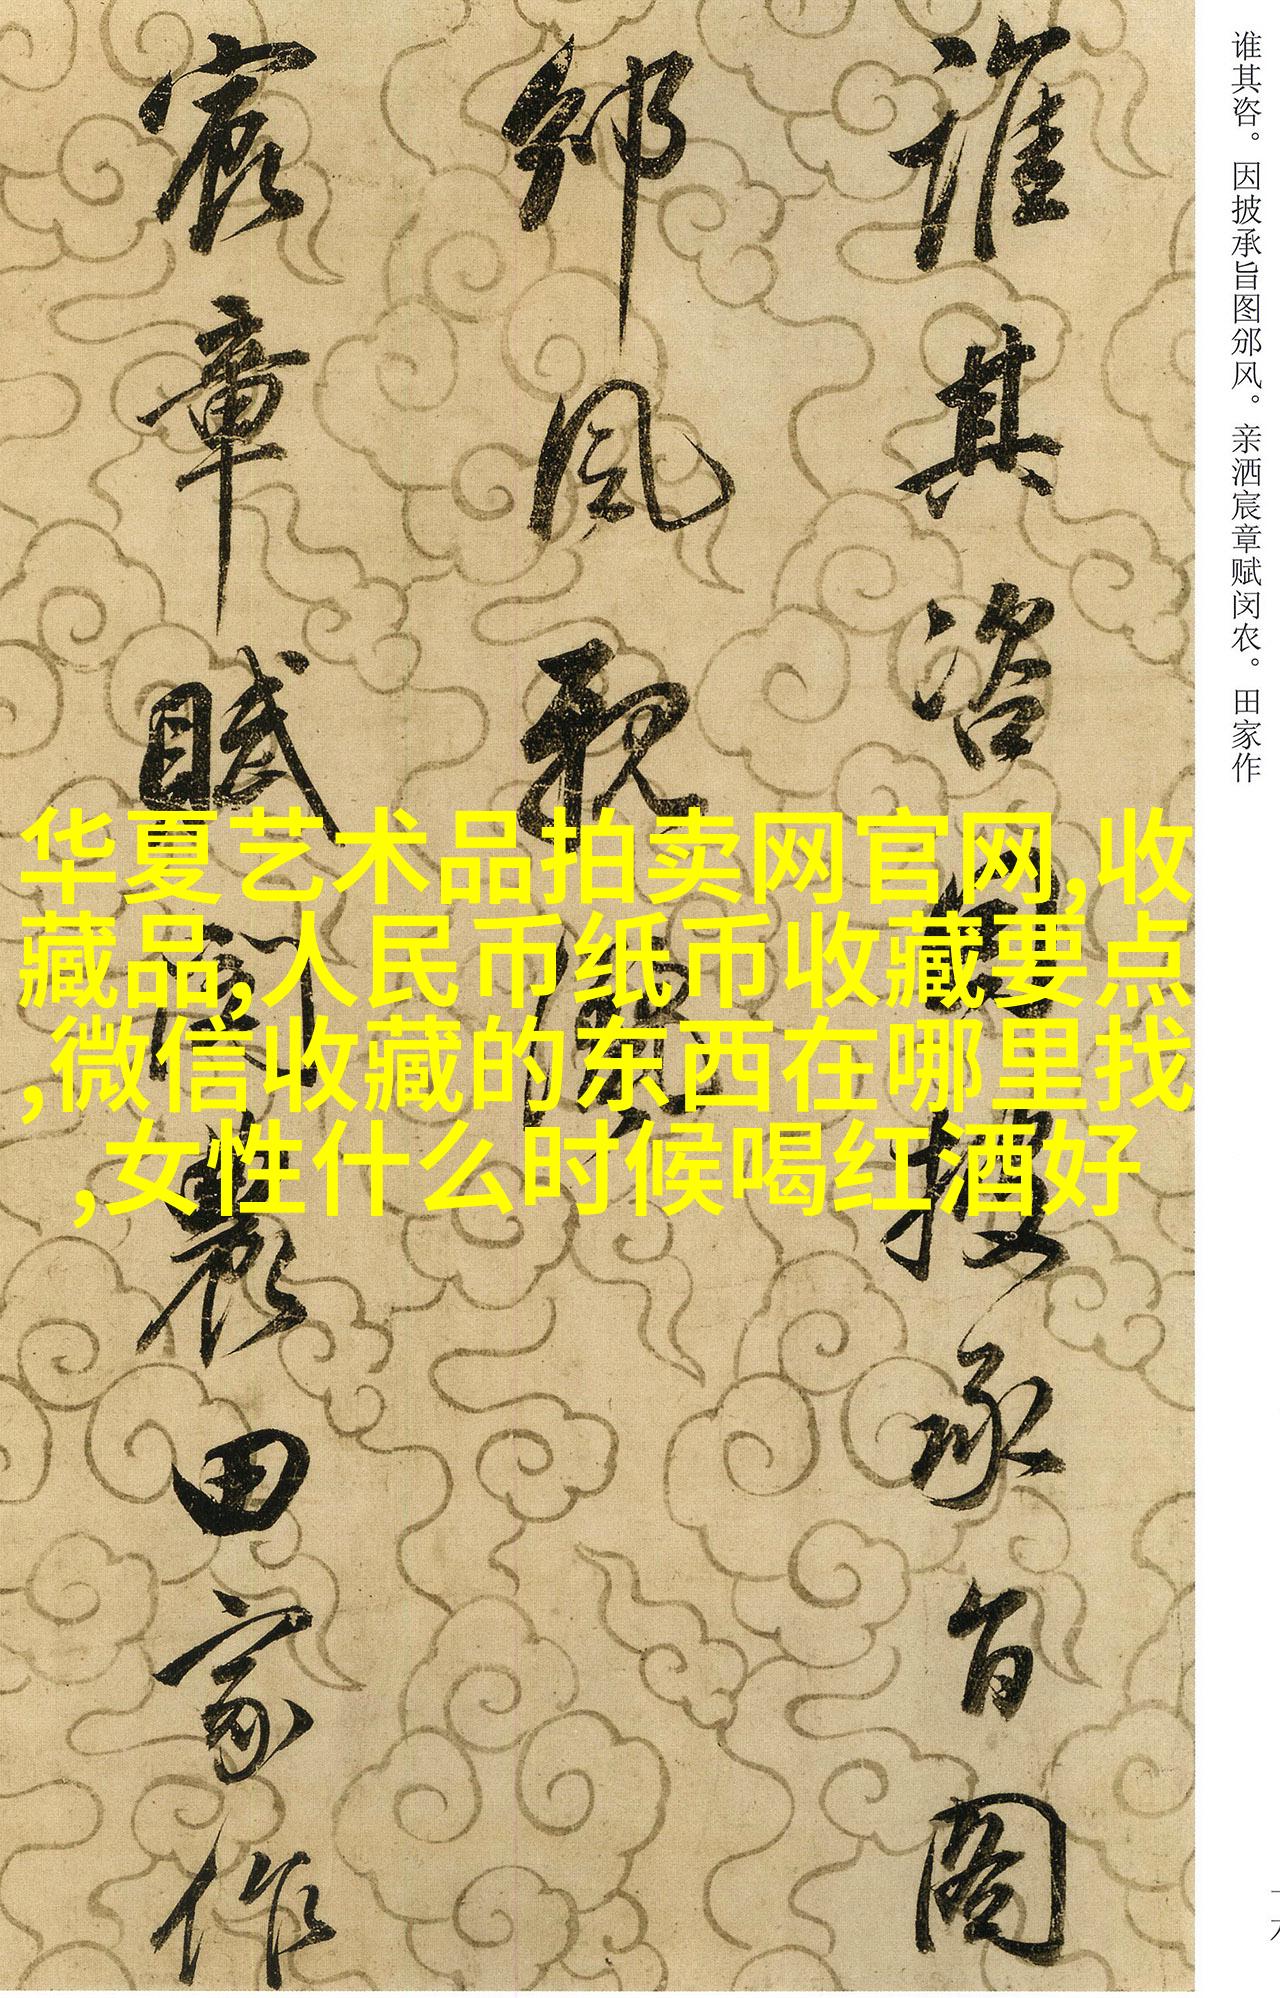 谁其咨。因披承旨图邠风。亲洒宸章赋闵农。田家作
誰其咨因披承旨圖
邠風親灑
宸章賦閔農田家作
华夏艺术品拍卖网官网,收
藏品,人民币纸币收藏要点
,微信收藏的东西在哪里找
,女性什么时候喝红酒好